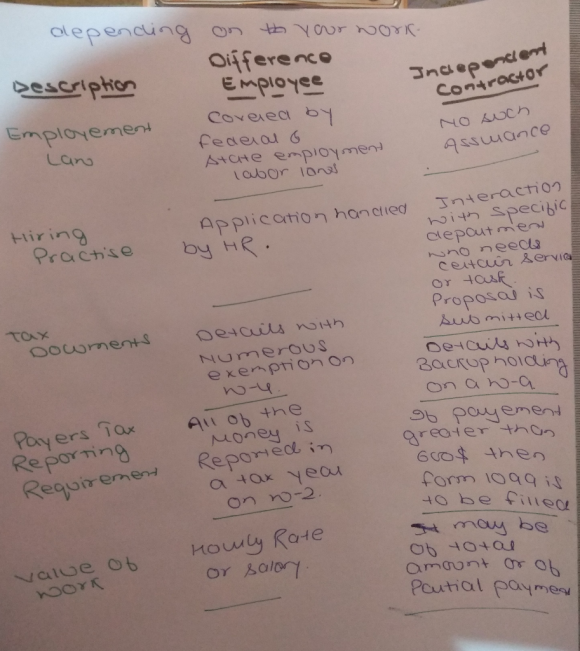 depending on your work.
Difference
Description
Employee
Independent
Contractor
Employement
Law
Covered by
federal &
state employment
labor laws
No such
Assurance
Hiring
Practise
Application handled
by HR.
Interaction
with specific
department
who needs
certain service
or task.
Proposal is
submitted
Tax
Documents
Details with
Numerous
exemption on
W-4.
Details with
Backupholding
on a W-9
Payers Tax
Reporting
Requirement
All of the
Money is
Reported in
a tax year
on W-2.
If payement
greater than
600$ then
form 1099 is
to be filled
Value of
work
Hourly Rate
or salary.
may be
of total
amount or of
Partial paymen